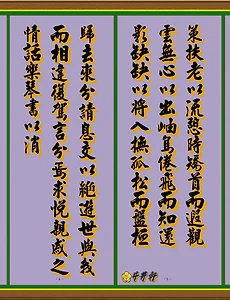 策扶老以流憩時矯首而遐觀
雲無心以出岫鳥倦飛而知還
影以將入撫孤松而盤桓
歸去來兮請息交以絕遊世與我
而相違復駕言兮焉求悅親戚之
情話樂琴書以消